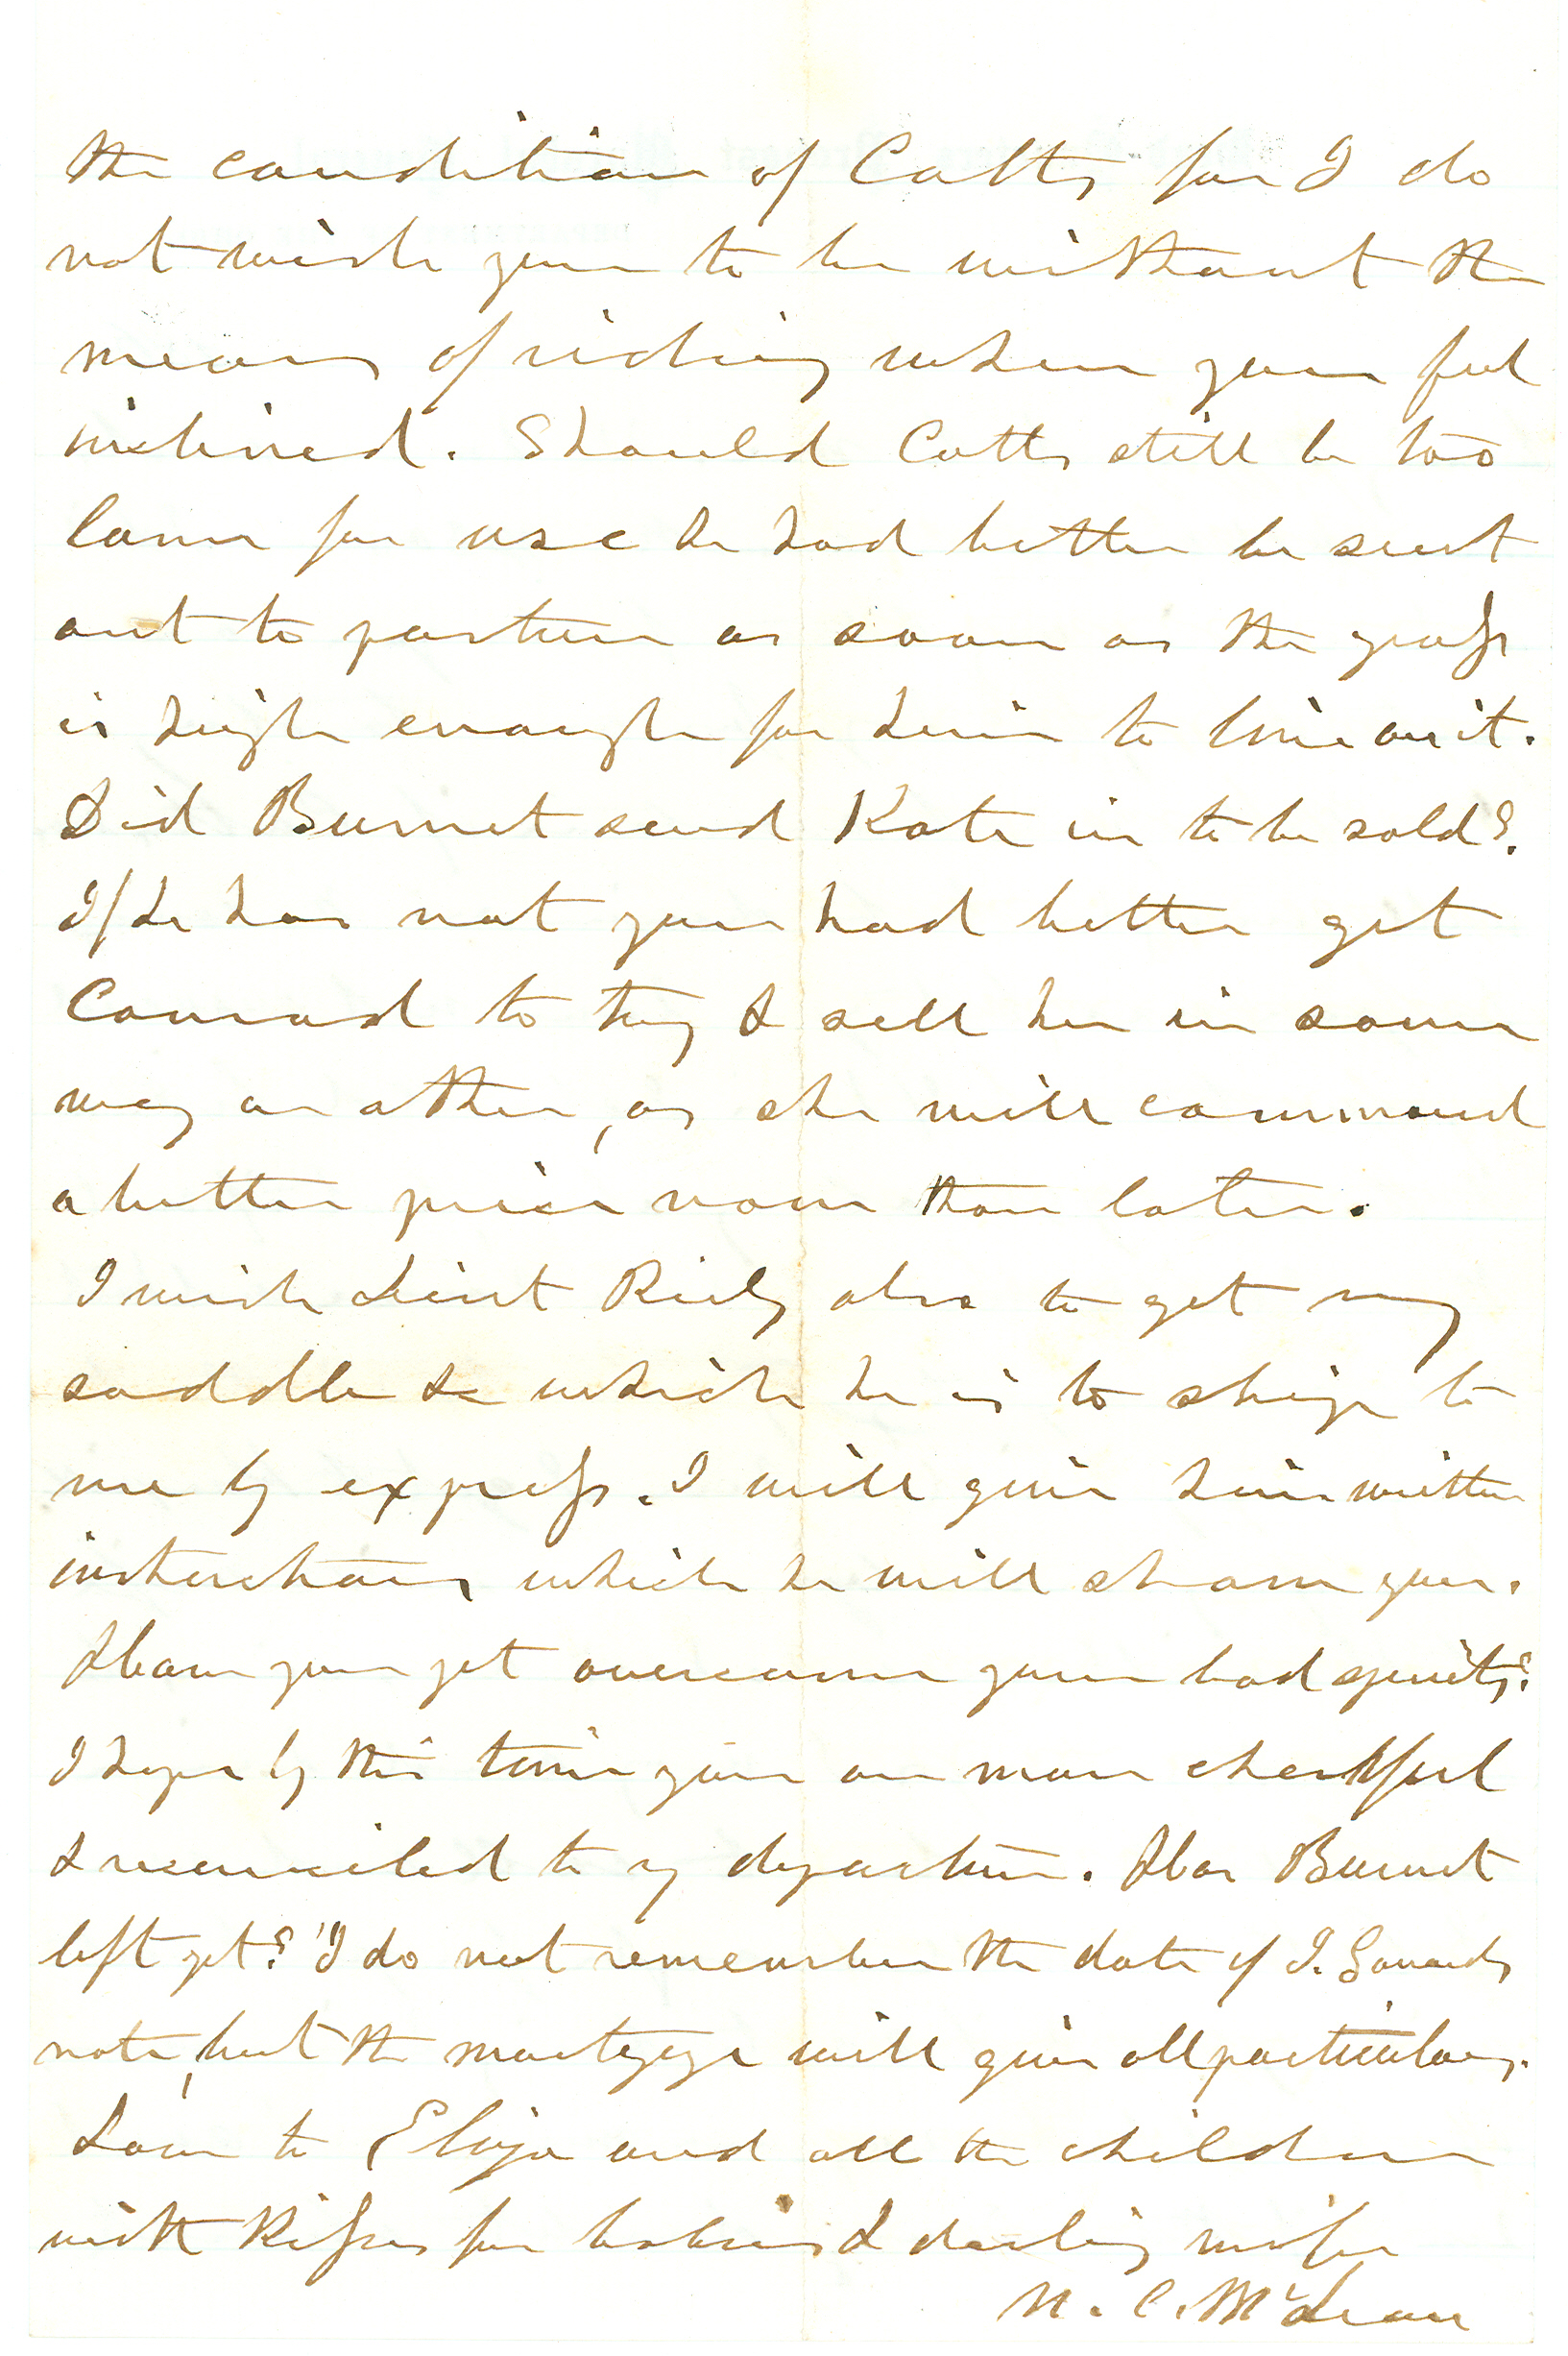 the condition of Colts for I do
not wish you to be without the
means of riding when you feel
inclined. Should Colts still be too
lame for use he had better be sent
out to pasture as soon as the grass
is high enough for him to live on it.
Did Burnet send Kate in to be sold?
If he has not you had better get
Conrad to try & sell her in some
way or other, as she will command
a better price now than later.
I wish Lieut Riely also to get my
saddle &c which he is to ship to
me by express. I will give him written
instructions which he will show you.
Have you yet overcome your bad spirits?
I hope by this time you are more cheerful
& reconciled to my departure. Has Burnet
left yet? I do not remember the date of J.
note, but the mortgage will give all particulars.
Love to Eliza and all the children
with kisses for babies & darling wife
N. C. McLean